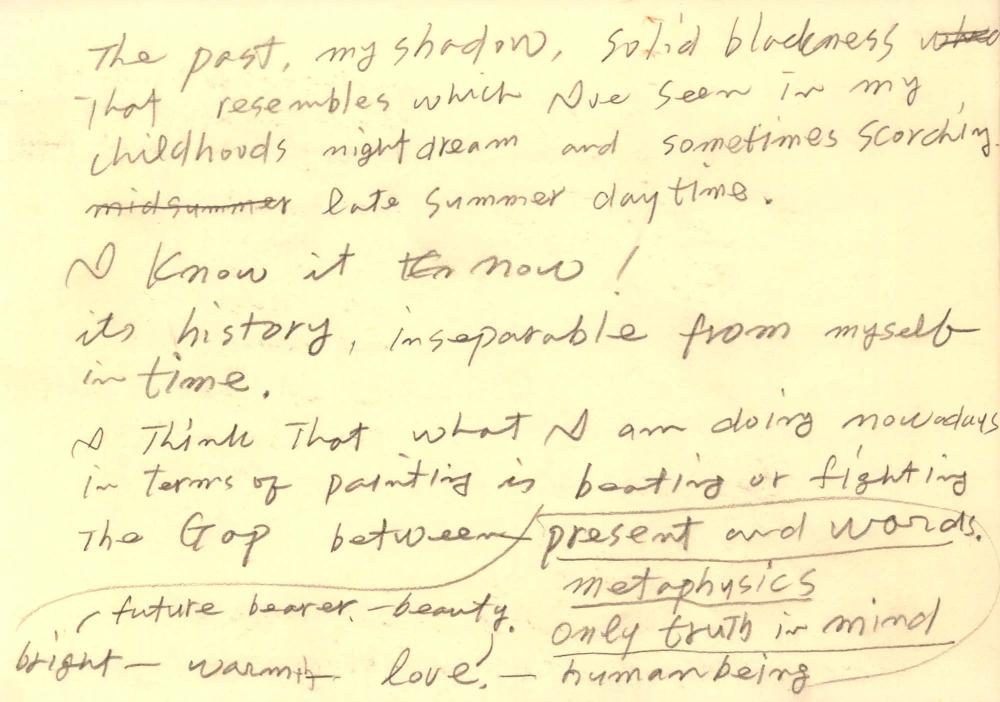 The past, my shadow, solid blackness
That resembles which I've seen in my
childhoods nightdream and sometimes scorching
midsummer late summer daytime.
I Know it now!
its history, inseparable from myself
in time.
I Think That what I am doing nowadays
in terms of painting is beating or fighting
The Gap between present and words.
metaphysics
future bearer. - beauty.
only truth in mind
bright - warmit - love. - humanbeing